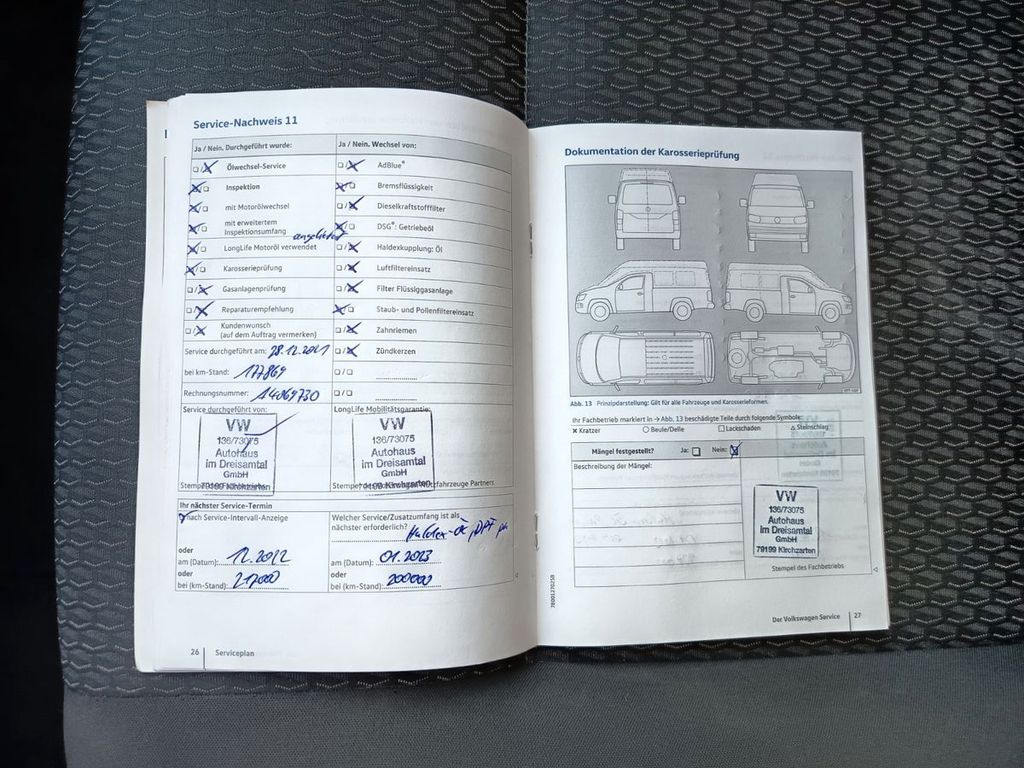 Service-Nachweis 11
Ja / Nein. Durchgeführt wurde:
Ölwechsel-Service
Inspektion
mit Motorölwechsel
mit erweitertem
Inspektionsumfang
LongLife Motoröl verwendet
Karosserieprüfung
Gasanlagenprüfung
Reparaturempfehlung
Kundenwunsch
(auf dem Auftrag vermerken)
Service durchgeführt am: 28.12.2021
bei km-Stand: 177869
Rechnungsnummer: 14069730
Service durchgeführt von:
VW
136/73075
Autohaus
im Dreisamtal
GmbH
79199 Kirchzarten
Ja / Nein. Wechsel von:
AdBlue®
Bremsflüssigkeit
Dieselkraftstofffilter
DSG®: Getriebeöl
Haldexkupplung: Öl
Luftfiltereinsatz
Filter Flüssiggasanlage
Staub- und Pollenfiltereinsatz
Zahnriemen
Zündkerzen
LongLife Mobilitätsgarantie:
VW
136/73075
Autohaus
im Dreisamtal
GmbH
79199 Kirchzarten
Ihr nächster Service-Termin
nach Service-Intervall-Anzeige
oder
am (Datum): 12.2022
oder
bei (km-Stand): 217000
Welcher Service/Zusatzumfang ist als
nächster erforderlich?
am (Datum): 01.2023
oder
bei (km-Stand): 200000
26 Serviceplan
Dokumentation der Karosserieprüfung
Abb. 13 Prinzipdarstellung: Gilt für alle Fahrzeuge und Karosserieformen.
Ihr Fachbetrieb markiert in → Abb. 13 beschädigte Teile durch folgende Symbole:
× Kratzer ○ Beule/Delle □ Lackschaden △ Steinschlag
Mängel festgestellt? Ja: Nein:
Beschreibung der Mängel:
VW
136/73075
Autohaus
im Dreisamtal
GmbH
79199 Kirchzarten
Stempel des Fachbetriebs
Der Volkswagen Service 27